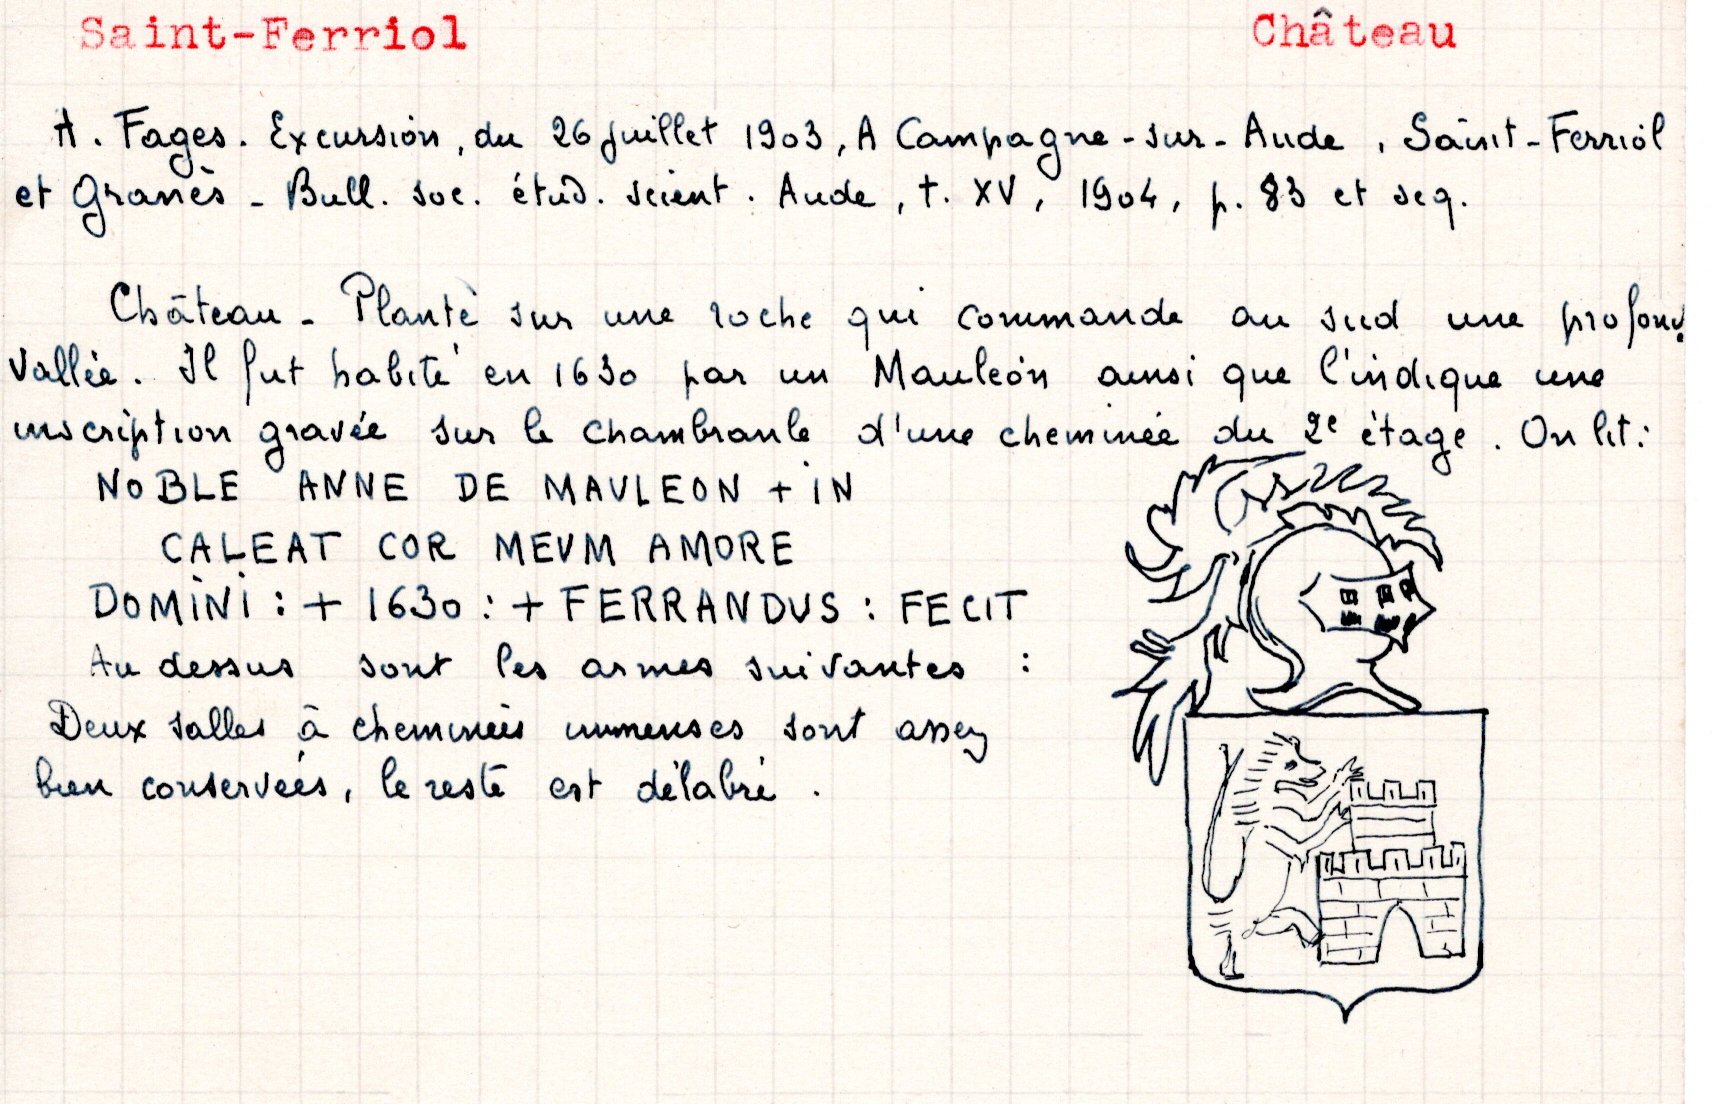 Saint-Ferriol Château
A. Fages. Excursion, du 26 juillet 1903, A Campagne-sur-Aude, Saint-Ferriol
et Granès - Bull. soc. étud. scient. Aude, t. XV, 1904, p. 83 et seq.
Château - Planté sur une roche qui commande au sud une profond
vallée. Il fut habité en 1630 par un Mauléon ainsi que l'indique une
inscription gravée sur le chambranle d'une cheminée du 2e étage. On lit:
NOBLE ANNE DE MAVLEON + iN
CALEAT COR MEVM AMORE
DOMiNi : + 1630 : + FERRANDVS : FECIT
Au dessus sont les armes suivantes :
Deux salles à cheminées immenses sont assez
bien conservées, le reste est délabré.